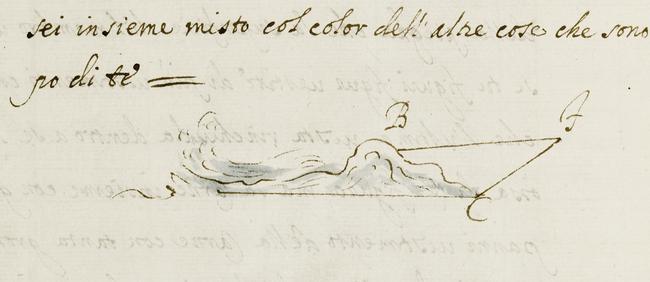 sei insieme misto col color dell' altre cose che sono
po di te
B
C